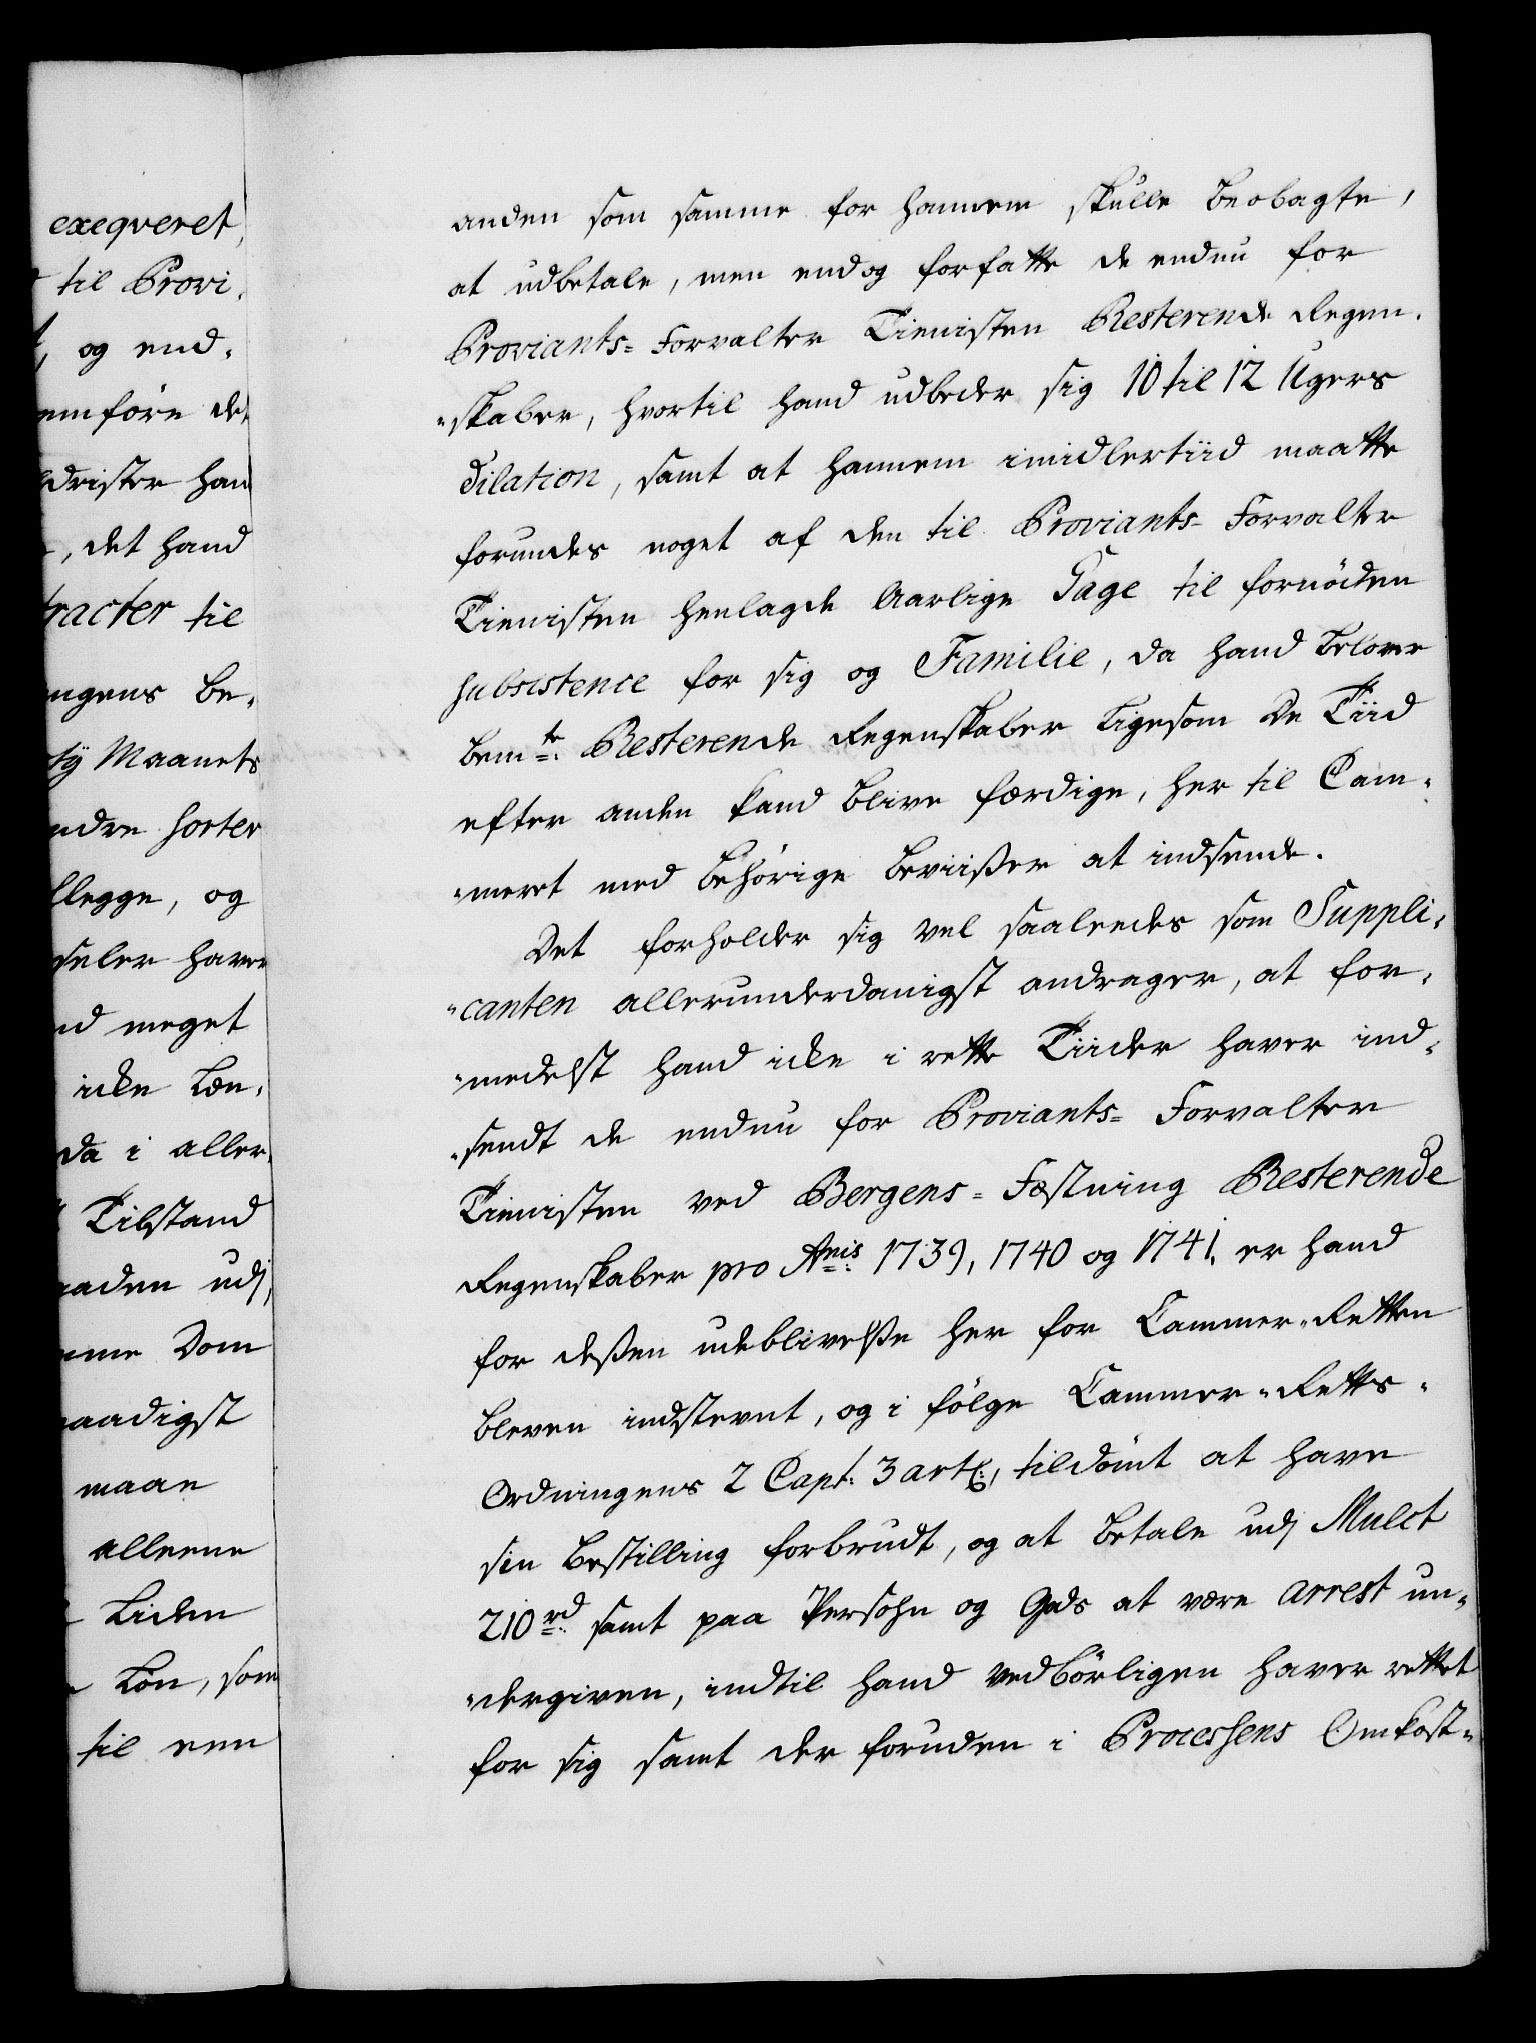 exeqveret,
til Provi-
og end-
emföre det
drister han
, det hand
racter til
ngens be-
ty Maanets
ndre sorter
legge, og
seler haver
nd meget
icke Læn-
da i aller-
Tilstand
aaden udj
mme Dom
aadigst
maae
alleene
Liden
Lön, som
til een
anden som samme for hannem skulle beobagte,
at udbetale, men endog forfatte de endnu for
Proviants- Forvalter Tienisten Resterende Regen-
-skaber, hvortil hand udbeder sig 10 til 12 Ugers
Dilation, samt at hannem imidlertiid maatte
forundes noget af den til Proviants- Forvalter
Tienisten henlagde Aarlige Gage til fornöden
subsistence for sig og Familie, da hand belover
bemte Resterende Regenskaber Ligesom De Tiid
efter anden kand blive færdige, her til Cam-
-meret med behörige beviißer at indsende.
Det forholder sig vel saaleedes som Suppli-
-canten allerunderdanigst andrager, at for-
-medelst hand icke i rette Tiider haver ind-
-sendt de endnu for Proviants- Forvalter
Tienisten ved Bergens- Fæstning Resterende
Regenskaber pro Anis 1739, 1740 og 1741, er hand
for deßen udeblivelse her for Cammer-Retten
bleven indstevnt, og i fölge Cammer-Retts-
Ordningens 2 Capt: 3 artl:, tildömt at have
sin bestilling forbrudt, og at betale udj Mulct
210 rd samt paa Persohn og Gods at være arrest un-
-dergiven, indtil hand vedbörligen haver rettet
for sig samt der foruden i Processens Omkost-